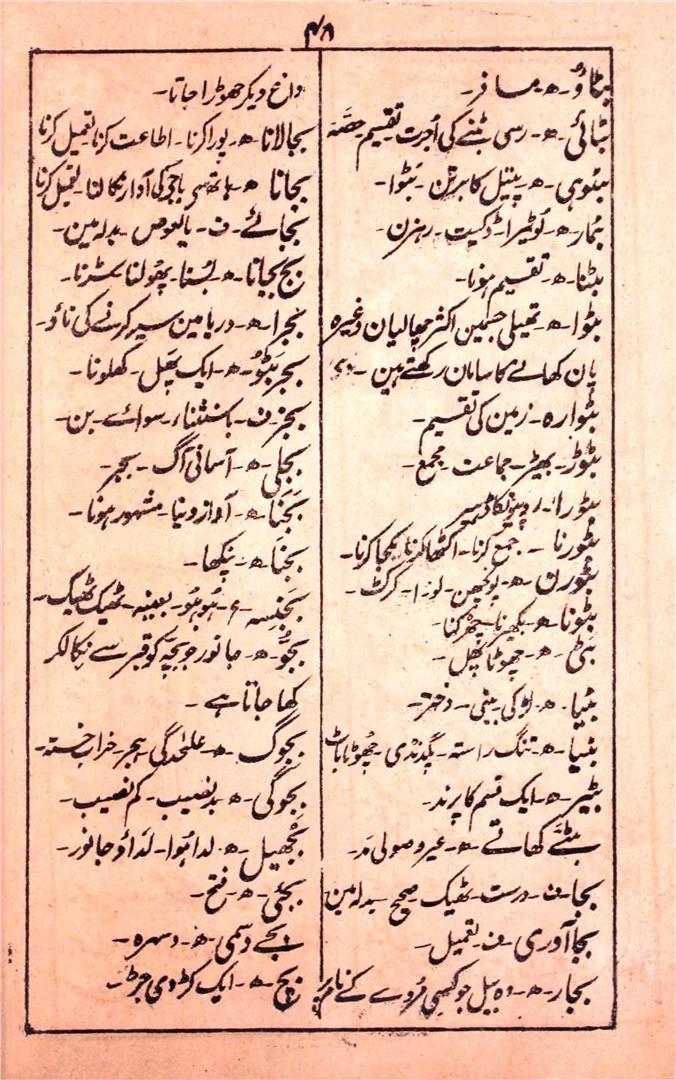 ۴۸
بٹاؤ۔ ھ۔ مسافر۔
بٹائی۔ ھ۔ رسی بٹنے کی اُجرت تقسیم حصہ
بٹوہی۔ ھ۔ پیتل کا برتن۔ بٹوا۔
بٹمار۔ ھ۔ لُوٹیرا۔ ڈکیت۔ رہزن۔
بٹنا۔ ھ۔ تقسیم ہونا۔
بٹوا۔ ھ۔ تھیلی جسمین اکثر چھالیان وغیرہ
پان کھانے کا سامان رکھتے ہین۔
بٹوارہ۔ زمین کی تقسیم۔
بٹوڑ۔ بھیڑ۔ جماعت۔ مجمع۔
بٹورا۔
بٹورنا۔ جمع کرنا۔ اکٹھا کرنا۔ یکجا کرنا۔
بٹورن۔ ھ۔ کرکٹ۔
بٹونا۔ ھ۔ بکھیرنا۔ چھڑکنا۔
بٹی۔ ھ۔ چھوٹا پھل۔
بٹیا۔ ھ۔ لڑکی۔ بیٹی۔ دختر۔
بٹیا۔ ھ۔ تنگ راستہ۔ پگڈنڈی۔ چھوٹا باٹ
بٹیر۔ ھ۔ ایک قسم کا پرند۔
بٹے کھاتے۔ ھ۔ غیر وصولی مَد۔
بجا۔ ف۔ درست۔ ٹھیک۔ صحیح۔ بدلہ مین
بجا آوری۔ ف۔ تعمیل۔
بجار۔ ھ۔ وہ بیل جو کسی مُردے کے نام پر
داغ دیکر چھوڑا جاتا۔
بجالانا۔ ھ۔ پورا کرنا۔ اطاعت کرنا۔ تعمیل کرنا
بجانا۔ ھ۔ باجے کی آواز نکالنا۔ تعمیل کرنا
بجائے۔ ف۔ بالعوض۔ بدلہ مین۔
بج بجانا۔ ھ۔ بُسنا۔ پھُولنا۔ سڑنا۔
بجرا۔ ھ۔ دریا مین سیر کرنے کی ناؤ۔
بجر بَٹُو۔ ھ۔ ایک پھَل۔ کھلونا۔
بجز۔ ف۔ باستثناء۔ سوائے۔ بن۔
بجلی۔ ھ۔ آسمانی آگ۔ بجر۔
بَجنا۔ ھ۔ آواز دینا۔ مشہور ہونا۔
بجنا۔ ھ۔ پنکھا۔
بجنسہ۔ ع۔ ہُوبہُو۔ بعینہ۔ ٹھیک ٹھیک۔
بجُّو۔ ھ۔ جانور جو بچہ کو قبر سے نکالکر
کھا جاتا ہے۔
بجوگ۔ ھ۔ علٰحدگی۔ ہجر۔ خراب خستہ۔
بجوگی۔ ھ۔ بدنصیب۔ کم نصیب۔
بجھیل۔ ھ۔ لدا ہُوا۔ لدَاؤ جانور۔
بجئی۔ ھ۔ فتح۔
بجے دسمی۔ ھ۔ دسہرہ۔
بچ۔ ھ۔ ایک کڑوی جڑ۔